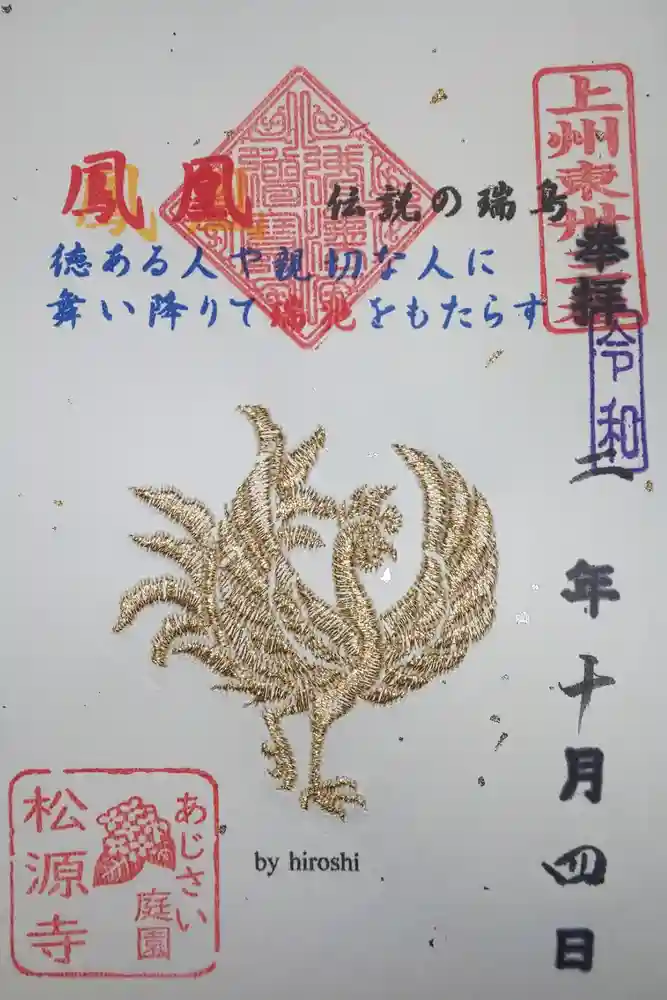 奉拝
令和
二年十月四日
鳳凰 伝説の瑞鳥
徳ある人や親切な人に
舞い降りて瑞兆をもたらす
by hiroshi
あじさい
庭園
松源寺